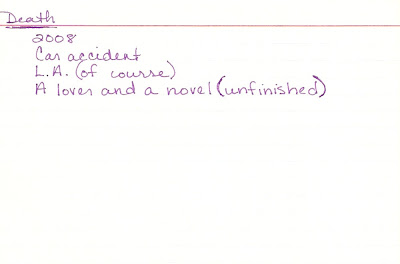 Death
2008
Car accident
L.A. (of course)
A lover and a novel (unfinished)